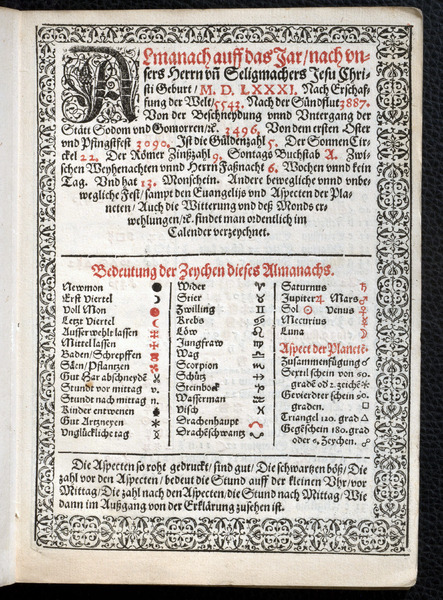 ALmanach auff das Jar/nach vn-
sers Herrn vñ Seligmachers Jesu Chri-
sti Geburt/M. D. LXXXI. Nach Erschaf-
fung der Welt/5543. Nach der Sündflut 3887.
Von der Beschneydung vnnd Vntergang der
Stätt Sodom vnd Gomorren/ꝛc. 3496. Von dem ersten Oster
vnd Pfingstfest 3090. Ist die Güldenzahl 5. Der Sonnen Cir-
ckel 22. Der Römer Zinßzahl 9. Sontags Buchstab A. Zwi-
schen Weyhenachten vnnd Herrn Faßnacht 6. Wochen vnnd kein
Tag. Vnd hat 13. Monschein. Andere bewegliche vnnd vnbe-
wegliche Fest/sampt den Euangelijs vnd Aspecten der Pla-
neten/Auch die Witterung vnd deß Monds er-
wehlungen/ꝛc. findet man ordentlich im
Calender verzeychnet.
Bedeutung der Zeychen dieses Almanachs.
Newmon ●
Erst Viertel ☽
Voll Mon
Letzt Viertel ☾
Ausserwehlt lassen
Mittel lassen
Baden/Schrepffen
Säen/Pflantzen
Gut Har abschneydẽ
Stund vor mittag v.
Stundt nach mittag n.
Kinder entwenen
Gut Artzneyen
Vnglückliche tag
Wider ♈
Stier ♉
Zwilling ♊
Krebs ♋
Löw ♌
Jungfraw ♍
Wag ♎
Scorpion ♏
Schütz ♐
Steinbock ♑
Wasserman ♒
Visch ♓
Drachenhaupt ☊
Drachẽschwantz ☋
Saturnus ♄
Jupiter ♃ Mars ♂
Sol ☉ Venus ♀
Mercurius ☿
Luna ☽
Aspect der Planetẽ.
Zusammenfügung ☌
Sextil schein von 60.
gradẽ oď 2. zeichẽ ⚹
Gevierdter schein 90.
graden. □
Triangel 120. grad △
Gegẽschein 180. grad
oder 6. Zeychen. ☍
Die Aspecten so roht gedruckt/sind gut/Die schwartzen böß/Die
zahl vor den Aspecten/bedeut die Stund auff der kleinen Vhr/vor
Mittag/Die zahl nach den Aspecten/die Stund nach Mittag/Wie
dann im Außgang von der Erklärung zusehen ist.